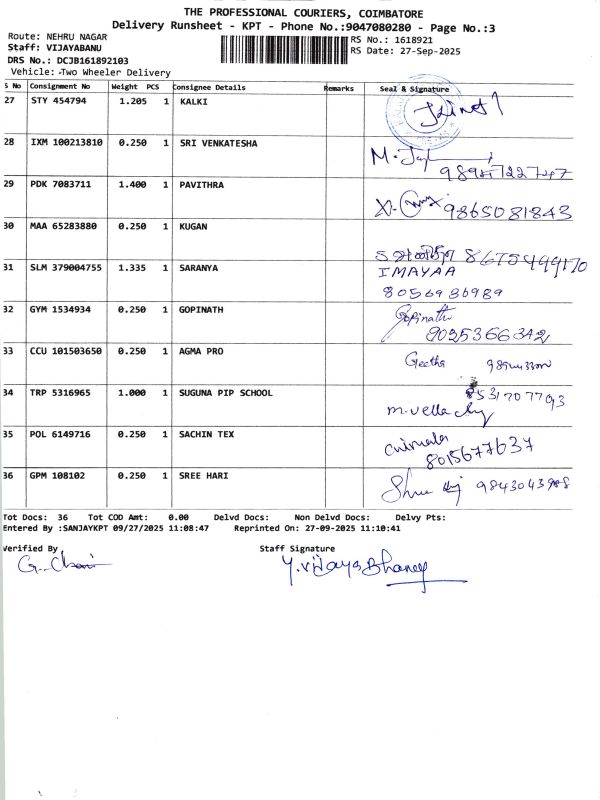 THE PROFESSIONAL COURIERS, COIMBATORE
Delivery Runsheet - KPT - Phone No.:9047080280 - Page No.:3
Route: NEHRU NAGAR
RS No.: 1618921
Staff: VIJAYABANU
RS Date: 27-Sep-2025
DRS No.: DCJB161892103
Vehicle: Two Wheeler Delivery
S No Consignment No Weight PCS Consignee Details Remarks Seal & Signature
27 STY 454794 1.205 1 KALKI
28 IXM 100213810 0.250 1 SRI VENKATESHA
M.
29 PDK 7083711 1.400 1 PAVITHRA
9865081843
30 MAA 65283880 0.250 1 KUGAN
8675499170
31 SLM 379004755 1.335 1 SARANYA
IMAYAA
8056936989
32 GYM 1534934 0.250 1 GOPINATH
Gopinath
8025366342
33 CCU 101503650 0.250 1 AGMA PRO
Geetha
34 TRP 5316965 1.000 1 SUGUNA PIP SCHOOL
8531707793
35 POL 6149716 0.250 1 SACHIN TEX
8015677637
36 GPM 108102 0.250 1 SREE HARI
Tot Docs: 36 Tot COD Amt: 0.00 Delvd Docs: Non Delvd Docs: Delvy Pts:
Entered By :SANJAYKPT 09/27/2025 11:08:47 Reprinted On: 27-09-2025 11:10:41
Verified By
Staff Signature
Y. Vijaya Bhaney